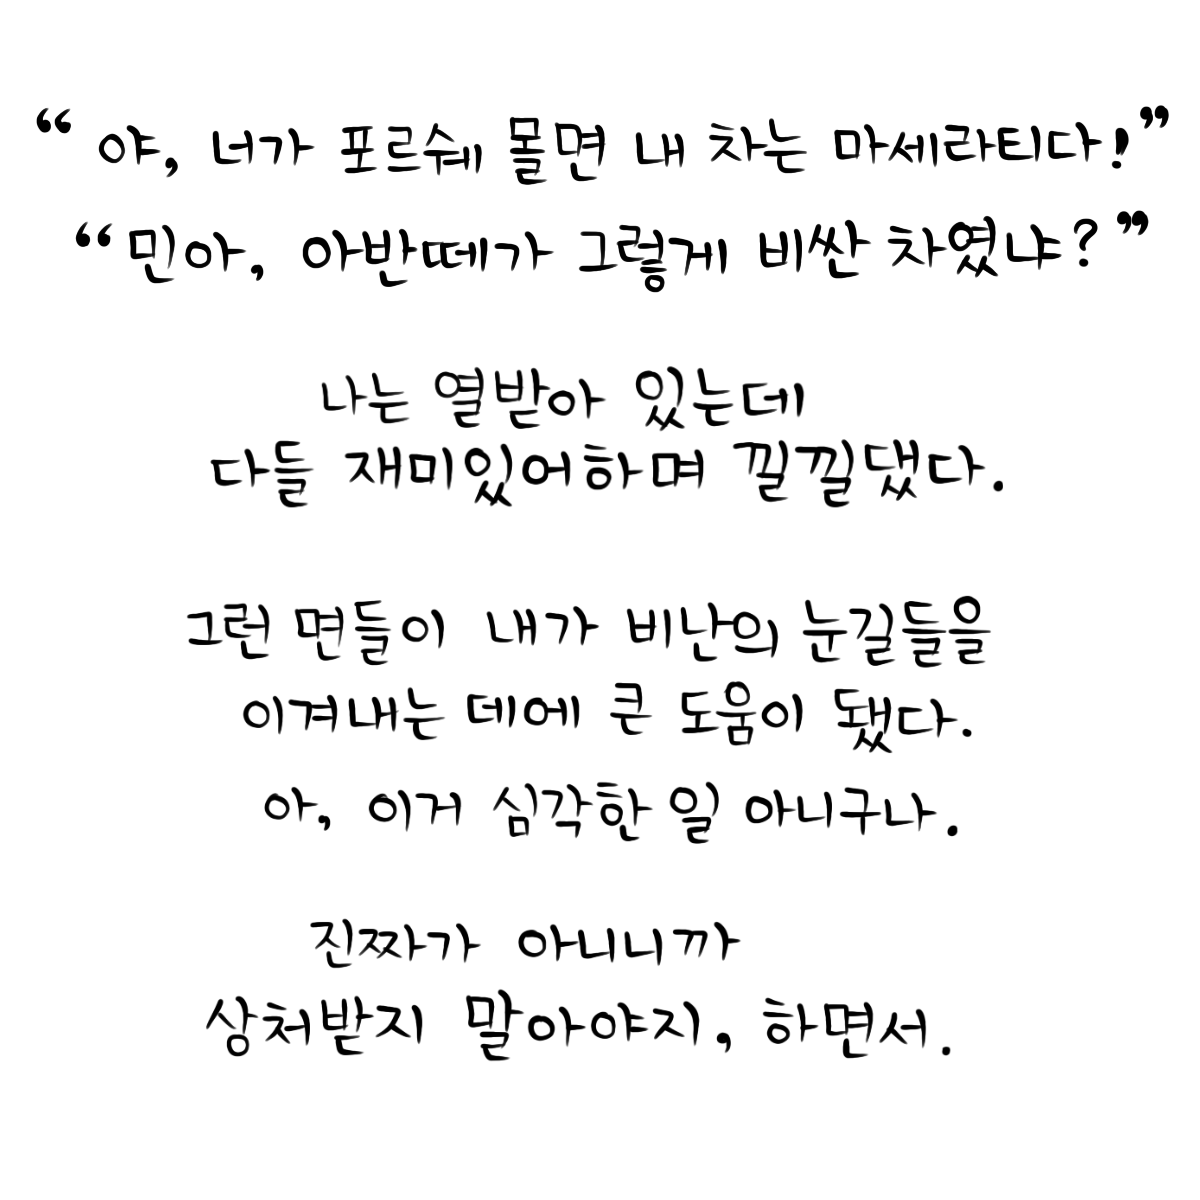 “야, 너가 포르쉐 몰면 내 차는 마세라티다!”
“민아, 아반떼가 그렇게 비싼 차였냐?”
나는 열받아 있는데
다들 재미있어하며 낄낄댔다.
그런 면들이 내가 비난의 눈길들을
이겨내는 데에 큰 도움이 됐다.
아, 이거 심각한 일 아니구나.
진짜가 아니니까
상처받지 말아야지, 하면서.